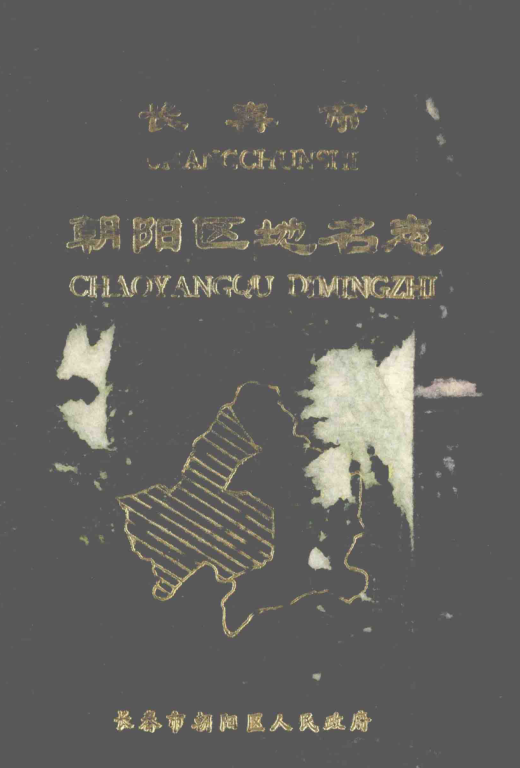 长春市
CHANGCHUNSHI
朝阳区地名志
CHAOYANGQU DIMINGZHI
长春市朝阳区人民政府